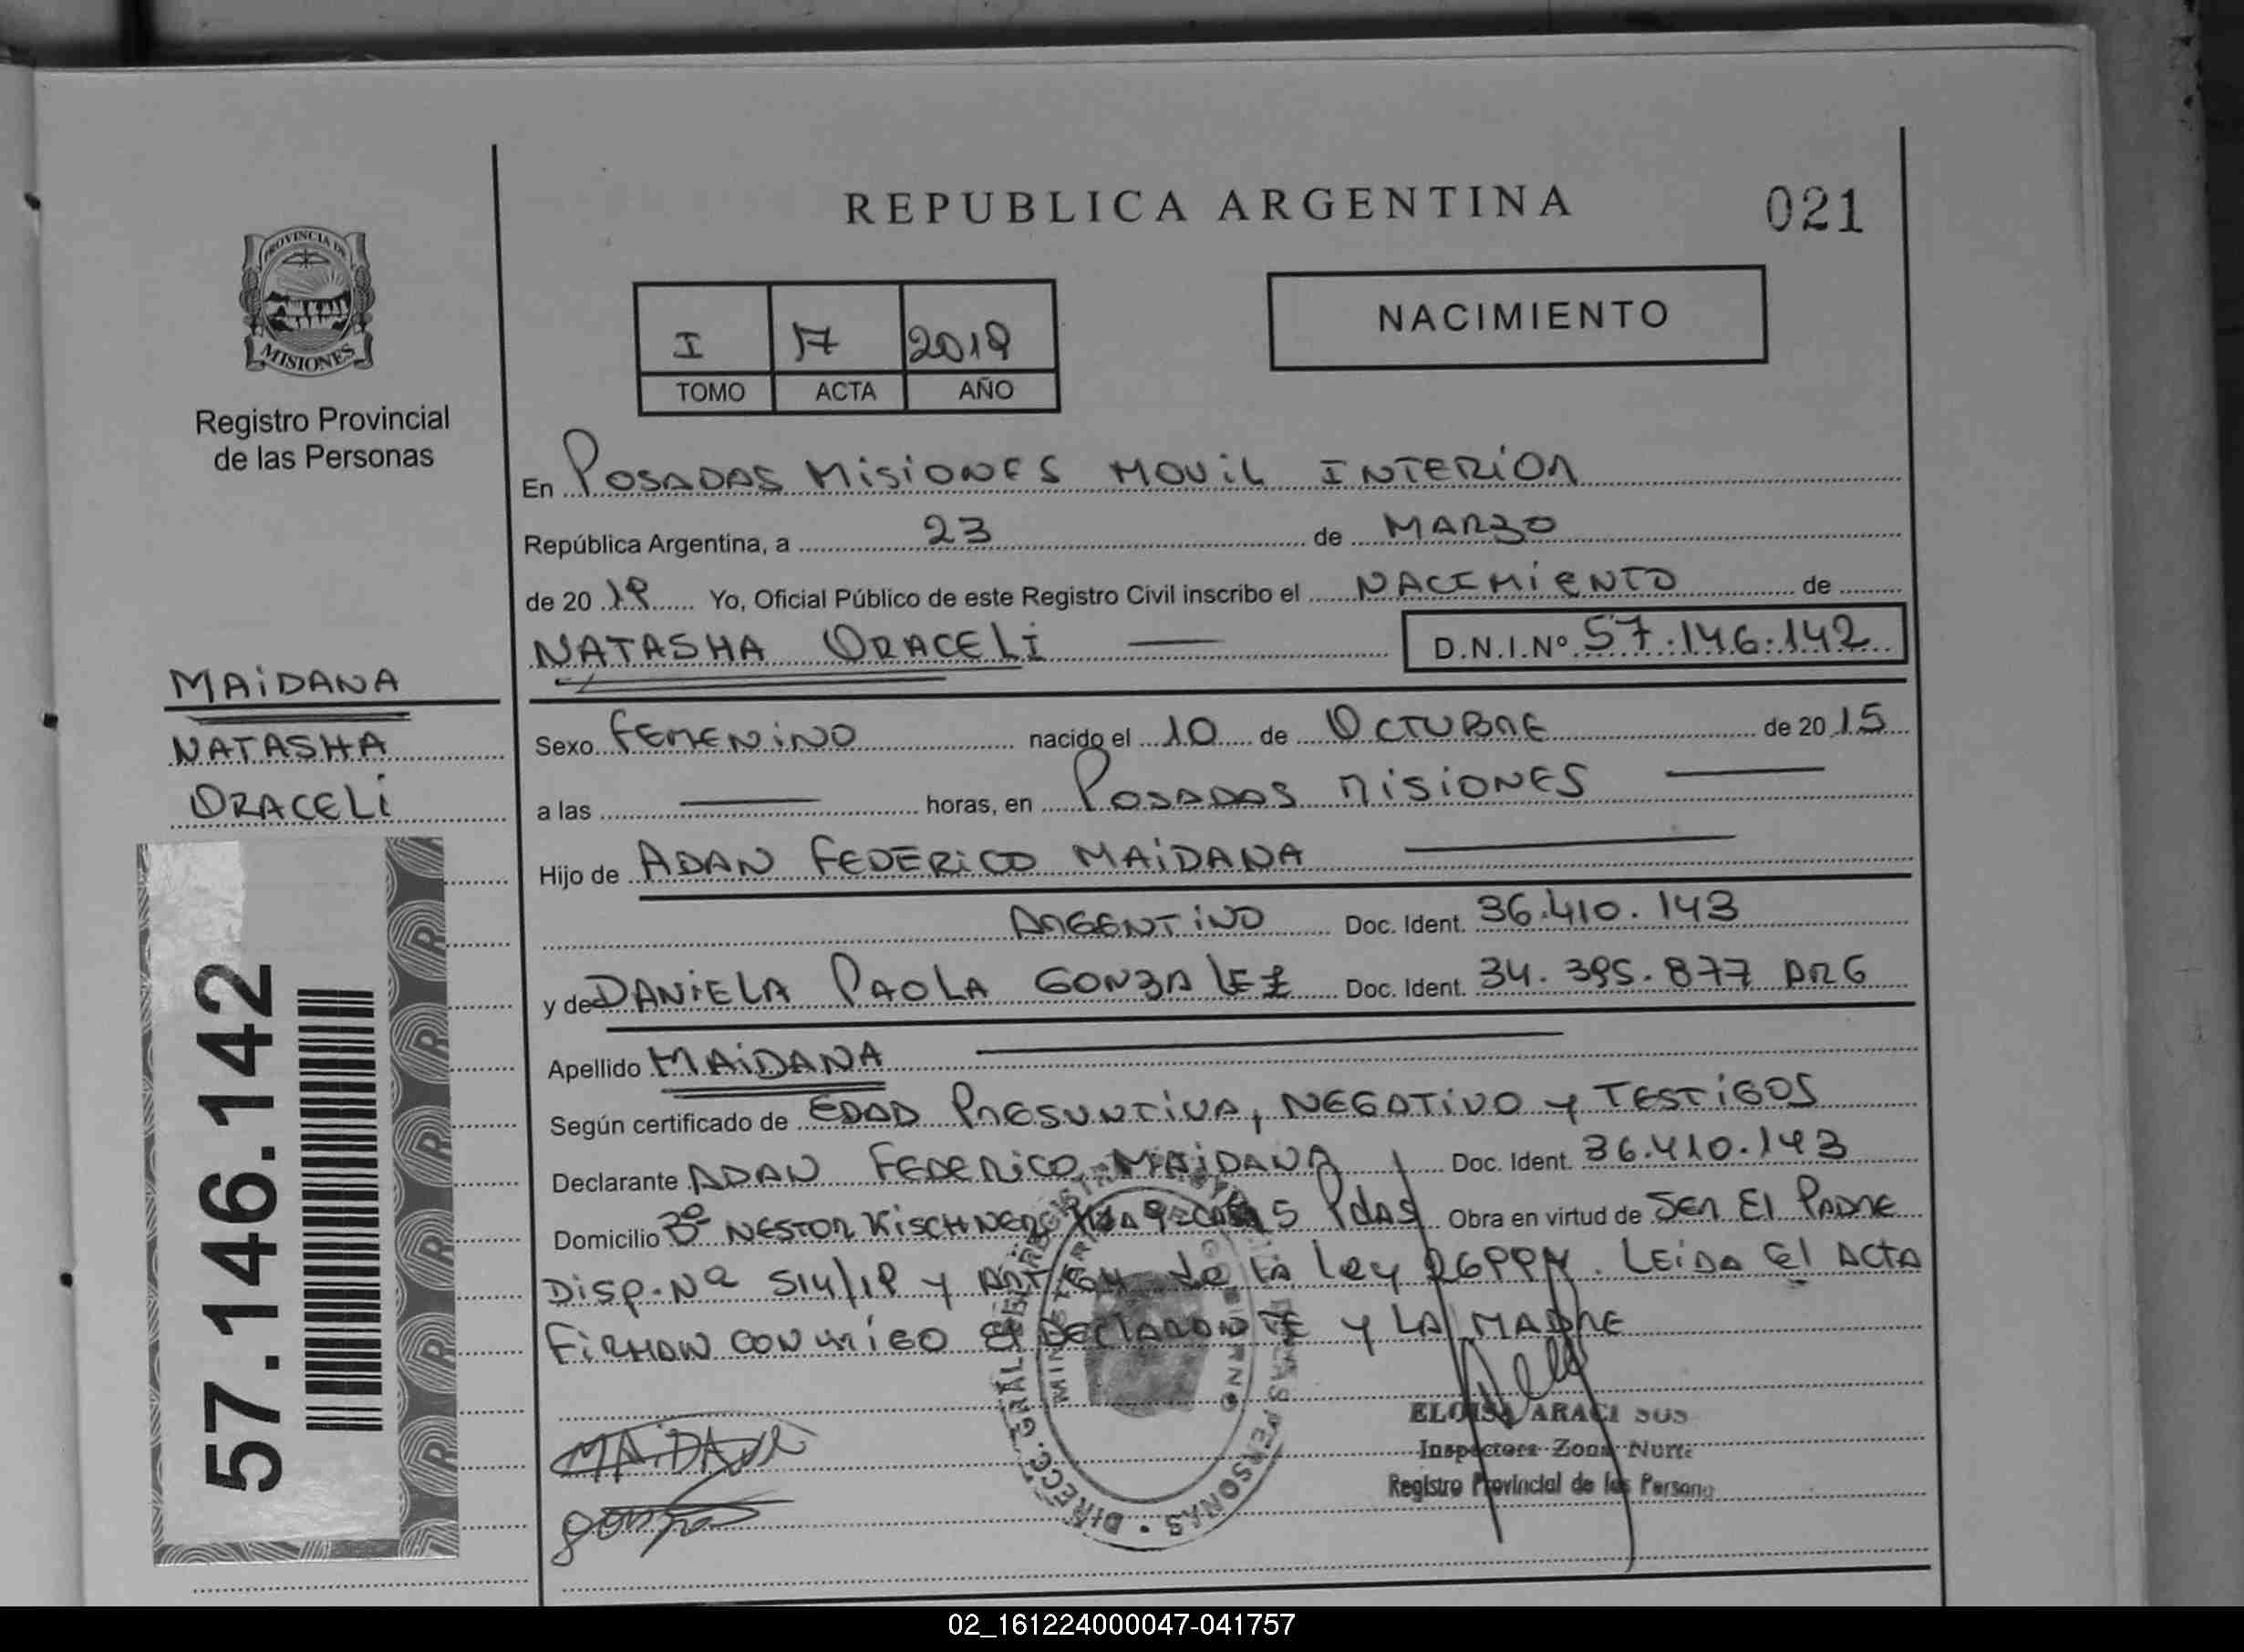 REPUBLICA ARGENTINA
021
PROVINCIA DE
MISIONES
Registro Provincial
de las Personas
I 17 2018
TOMO ACTA AÑO
NACIMIENTO
En POSADAS MISIONES MOVIL INTERIOR
República Argentina, a 23 de MARZO
de 20 18 Yo, Oficial Público de este Registro Civil inscribo el NACIMIENTO de
NATASHA ORACELI D.N.I.Nº 57.146.142
MAIDANA
NATASHA
ORACELI
Sexo FEMENINO nacido el 10 de OCTUBRE de 20 15
a las horas, en POSADAS MISIONES
Hijo de ADAN FEDERICO MAIDANA
ARGENTINO Doc. Ident. 36.410.143
y de DANIELA PAOLA GONZALEZ Doc. Ident. 34.395.877 ARG
Apellido MAIDANA
Según certificado de EDAD PRESUNTIVA, NEGATIVO y TESTIGOS
Declarante ADAN FEDERICO MAIDANA Doc. Ident. 36.410.143
Domicilio Bº NESTOR KISCHNER 5 PdAS Obra en virtud de SER El PADRE
DISP. Nº 514/18 y ART de la Ley LEIDA El ACTA
FIRMAN CONMIGO El DECLARANTE y LA MADRE
57.146.142
MAIDANA
ELOISA ARACI SOS
Inspectora Zona Norte
Registro Provincial de las Persona
DIRECC. GRAL DEL REGISTRO PERSONAS
02_161224000047-041757